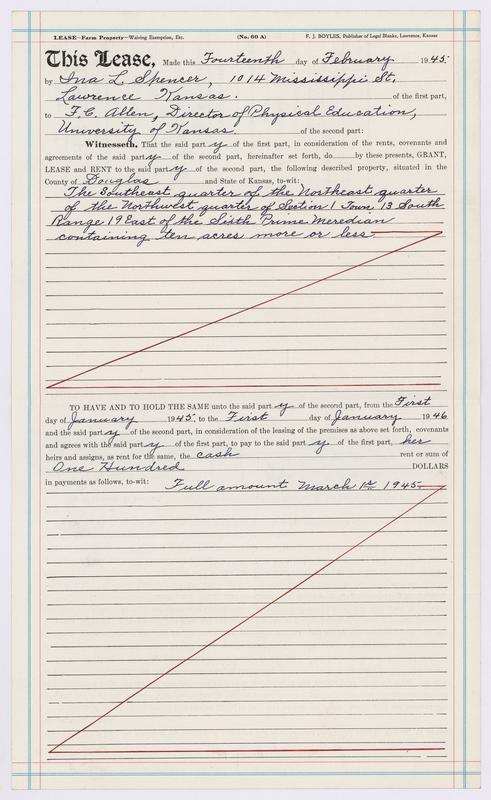 LEASE—Farm Property—Waiving Exemption, Etc. (No. 60 A) F. J. BOYLES, Publisher of Legal Blanks, Lawrence, Kansas
This Lease, Made this Fourteenth day of February 1945.
by Ina L. Spencer, 1014 Mississippi St,
Lawrence Kansas. of the first part,
to F. C. Allen, Director of Physical Education,
University of Kansas. of the second part:
Witnesseth, That the said party of the first part, in consideration of the rents, covenants and
agreements of the said party of the second part, hereinafter set forth, do by these presents, GRANT,
LEASE and RENT to the said party of the second part, the following described property, situated in the
County of Douglas and State of Kansas, to-wit:
The Southeast quarter of the Northeast quarter
of the Northwest quarter of Section 1 Town 13 South
Range 19 East of the Sixth Prime Meredian
containing ten acres more or less
TO HAVE AND TO HOLD THE SAME unto the said party of the second part, from the First
day of January 1945. to the First day of January 1946
and the said party of the second part, in consideration of the leasing of the premises as above set forth, covenants
and agrees with the said party of the first part, to pay to the said party of the first part, her
heirs and assigns, as rent for the same, the cash rent or sum of
One Hundred DOLLARS
in payments as follows, to-wit: Full amount March 1st 1945